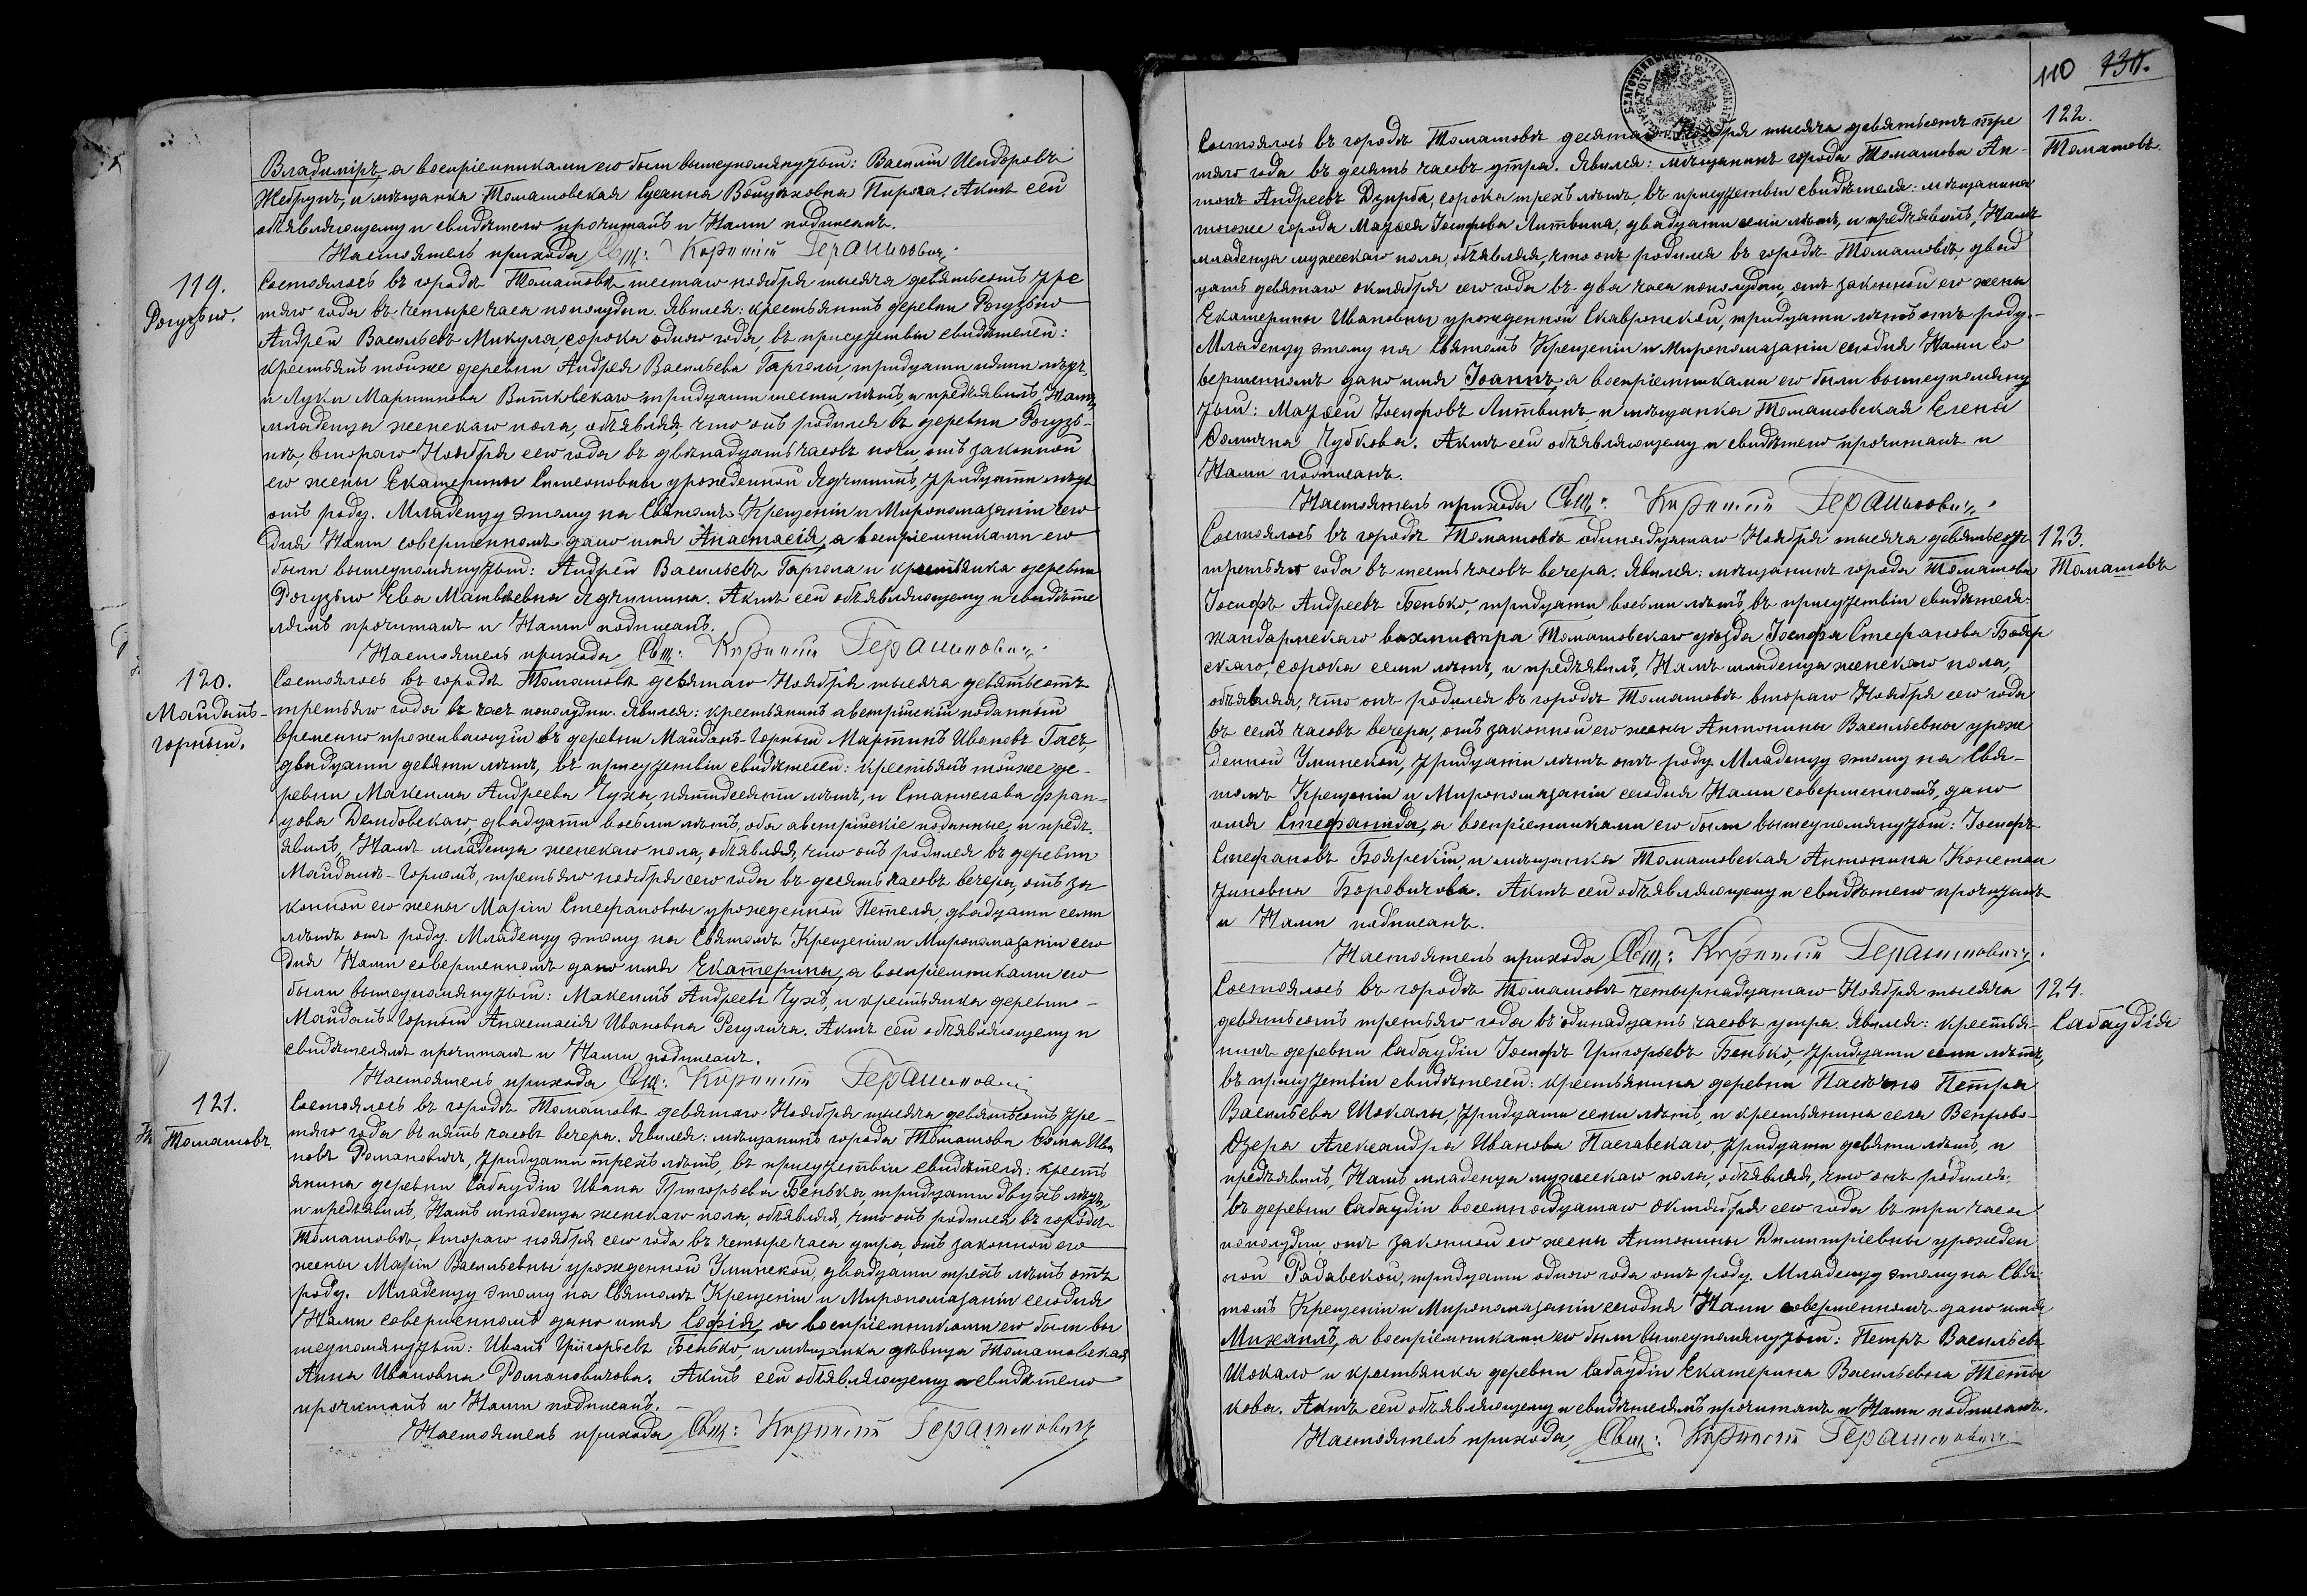 Владиміръ, а воспріемниками его были вышеупомянутые: Василій Исидоровъ
Жебрунъ, и мѣщанка Томашовская Сусанна Войцѣховна Пирога. Актъ сей
объявляющему и свидѣтелю прочитанъ и Нами подписанъ.
Настоятель прихода Свщ: Кирилій Герасимовичъ
119.
Рогузьно.
Состоялось въ городѣ Томашовѣ шестаго ноября тысяча девятьсотъ тре
тяго года въ четыре часа пополудни. Явился: крестьянинъ деревни Рогузьно
Андрей Васильевъ Микула, сорока одного года, въ присутствіи свидѣтелей:
крестьянъ тойже деревни Андрея Васильева Гарголы, тридцати пяти лѣтъ,
и Луки Мартинова Витковскаго тридцати шести лѣтъ, и предъявилъ Намъ
младенца женскаго пола, объявляя, что онъ родился въ деревни Рогузь-
нѣ, втораго Ноября сего года въ двѣнадцать часовъ ночи, отъ законной
его жены Екатерины Симеоновны урожденной Ядчишинъ, тридцати лѣтъ
отъ роду. Младенцу этому на Святомъ Крещеніи и Миропомазаніи сего
дня Нами совершенномъ дано имя Анастасія, а воспріемниками его
были вышеупомянутые: Андрей Васильевъ Гаргола и крестьянка деревни
Рогузьно Ева Матвѣевна Ядчишина. Актъ сей объявляющему и свидѣте
лямъ прочитанъ и Нами подписанъ.
Настоятель прихода Свщ: Кирилій Герасимовичъ
120.
Майданъ-
горный.
Состоялось въ городѣ Томашовѣ девятаго Ноября тысяча девятьсотъ
третьяго года въ часъ пополудни. Явился: крестьянинъ австрійскій поданный
временно проживающій въ деревни Майданъ-Горный Мартинъ Ивановъ Гасъ,
двадцати девяти лѣтъ, въ присутствіи свидѣтелей: крестьянъ тойже де-
ревни Максима Андреева Чуха, пятидесяти лѣтъ, и Станислава Фран-
цова Дембовскаго, двадцати восьми лѣтъ, оба австрійскіе поданные, и предъ-
явилъ Намъ младенца женскаго пола, объявляя, что онъ родился въ деревни
Майданъ-Горномъ, третьяго ноября сего года въ десять часовъ вечера, отъ за
конной его жены Маріи Стефановны урожденной Петеля, двадцати семи
лѣтъ отъ роду. Младенцу этому на Святомъ Крещеніи и Миропомазаніи сего
дня Нами совершенномъ дано имя Екатерина, а воспріемниками его
были вышеупомянутые: Максимъ Андреевъ Чухъ, и крестьянка деревни
Майданъ-Горный Анастасія Ивановна Регулича. Актъ сей объявляющему и
свидѣтелямъ прочитанъ и Нами подписанъ.
Настоятель прихода Свщ: Кирилій Герасимовичъ
121.
Томашовъ.
Состоялось въ городѣ Томашовѣ девятаго Ноября тысяча девятьсотъ тре-
тяго года въ пять часовъ вечера. Явился: мѣщанинъ города Томашова Ѳома Ива
новъ Романовичъ, тридцати трехъ лѣтъ, въ присутствіи свидѣтеля: кресть
янина деревни Сабаудіи Ивана Григорьева Бенька, тридцати двухъ лѣтъ,
и предъявилъ Намъ младенца женскаго пола, объявляя, что онъ родился въ городѣ
Томашовѣ, втораго ноября сего года въ четыре часа утра, отъ законной его
жены Маріи Васильевны урожденной Улинской, двадцати трехъ лѣтъ отъ
роду. Младенцу этому на Святомъ Крещеніи и Миропомазаніи сегодня
Нами совершенномъ дано имя Софія, а воспріемниками его были вы
шеупомянутые: Иванъ Григорьевъ Бенько, и мѣщанка дѣвица Томашовская
Анна Ивановна Романовичова. Актъ сей объявляющему и свидѣтелю
прочитанъ и Нами подписанъ.
Настоятель прихода Свщ: Кирилій Герасимовичъ
110 131.
122.
Томашовъ.
Состоялось въ городѣ Томашовѣ десятаго Ноября тысяча девятьсотъ тре
тяго года въ десять часовъ утра. Явился: мѣщанинъ города Томашова Ан-
тонъ Андреевъ Дзирба, сорока трехъ лѣтъ, въ присутствіи свидѣтеля: мѣщанина
тогоже города Маѳѳея Іосифова Литвина, двадцати семи лѣтъ, и предъявилъ Намъ
младенца мужескаго пола, объявляя, что онъ родился въ городѣ Томашовѣ, двад
цать девятаго октября сего года въ два часа пополудни, отъ законной его жены
Екатерины Ивановны урожденной Скавронской, тридцати лѣтъ отъ роду.
Младенцу этому на Святомъ Крещеніи и Миропомазаніи сегодня Нами со
вершенномъ дано имя Іоаннъ, а воспріемниками его были вышеупомяну
тые: Маѳѳей Іосифовъ Литвинъ, и мѣщанка Томашовская Елена
Ѳомична Чубкова. Актъ сей объявляющему и свидѣтелю прочитанъ и
Нами подписанъ.
Настоятель прихода Свщ: Кирилій Герасимовичъ
123.
Томашовъ
Состоялось въ городѣ Томашовѣ одинадцатаго Ноября тысяча девятьсотъ
третьяго года въ шесть часовъ вечера. Явился: мѣщанинъ города Томашова
Іосифъ Андреевъ Бенько, тридцати восьми лѣтъ, въ присутствіи свидѣтеля:
жандармскаго вахмистра Томашовскаго уѣзда Іосифа Стефанова Бояр
скаго, сорока семи лѣтъ, и предъявилъ Намъ младенца женскаго пола,
объявляя, что онъ родился въ городѣ Томашовѣ втораго Ноября сего года
въ семь часовъ вечера, отъ законной его жены Антонины Васильевны урож
денной Улинской, тридцати лѣтъ отъ роду. Младенцу этому на Свя-
томъ Крещеніи и Миропомазаніи сегодня Нами совершенномъ, дано
имя Стефанида, а воспріемниками его были вышеупомянутые: Іосифъ
Стефановъ Боярскій, и мѣщанка Томашовская Антонина Констан
тиновна Боровичова. Актъ сей объявляющему и свидѣтелю прочитанъ
и Нами подписанъ.
Настоятель прихода Свщ: Кирилій Герасимовичъ.
124.
Сабаудія
Состоялось въ городѣ Томашовѣ четырнадцатаго Ноября тысяча
девятьсотъ третьяго года въ одинадцать часовъ утра. Явился: крестья-
нинъ деревни Сабаудіи Іосифъ Григорьевъ Бенько, тридцати семи лѣтъ,
въ присутствіи свидѣтелей: крестьянина деревни Пасѣчно Петра
Васильева Шокалы, тридцати семи лѣтъ, и крестьянина села Вепрово-
Озера Александра Ивановъ Паславскаго, тридцати девяти лѣтъ, и
предъявилъ Намъ младенца мужескаго пола, объявляя, что онъ родился
въ деревни Сабаудіи восемнадцатаго октября сего года въ три часа
пополудни, отъ законной его жены Антонины Димитріевны урожден
ной Радавской, тридцати одного года отъ роду. Младенцу этому на Свя-
томъ Крещеніи и Миропомазаніи сегодня Нами совершенномъ дано имя
Михаилъ, а воспріемниками его были вышеупомянутые: Петръ Васильевъ
Шокало и крестьянка деревни Сабаудіи Екатерина Васильевна
кова. Актъ сей объявляющему и свидѣтелямъ прочитанъ и Нами подписанъ.
Настоятель прихода, Свщ: Кирилій Герасимовичъ